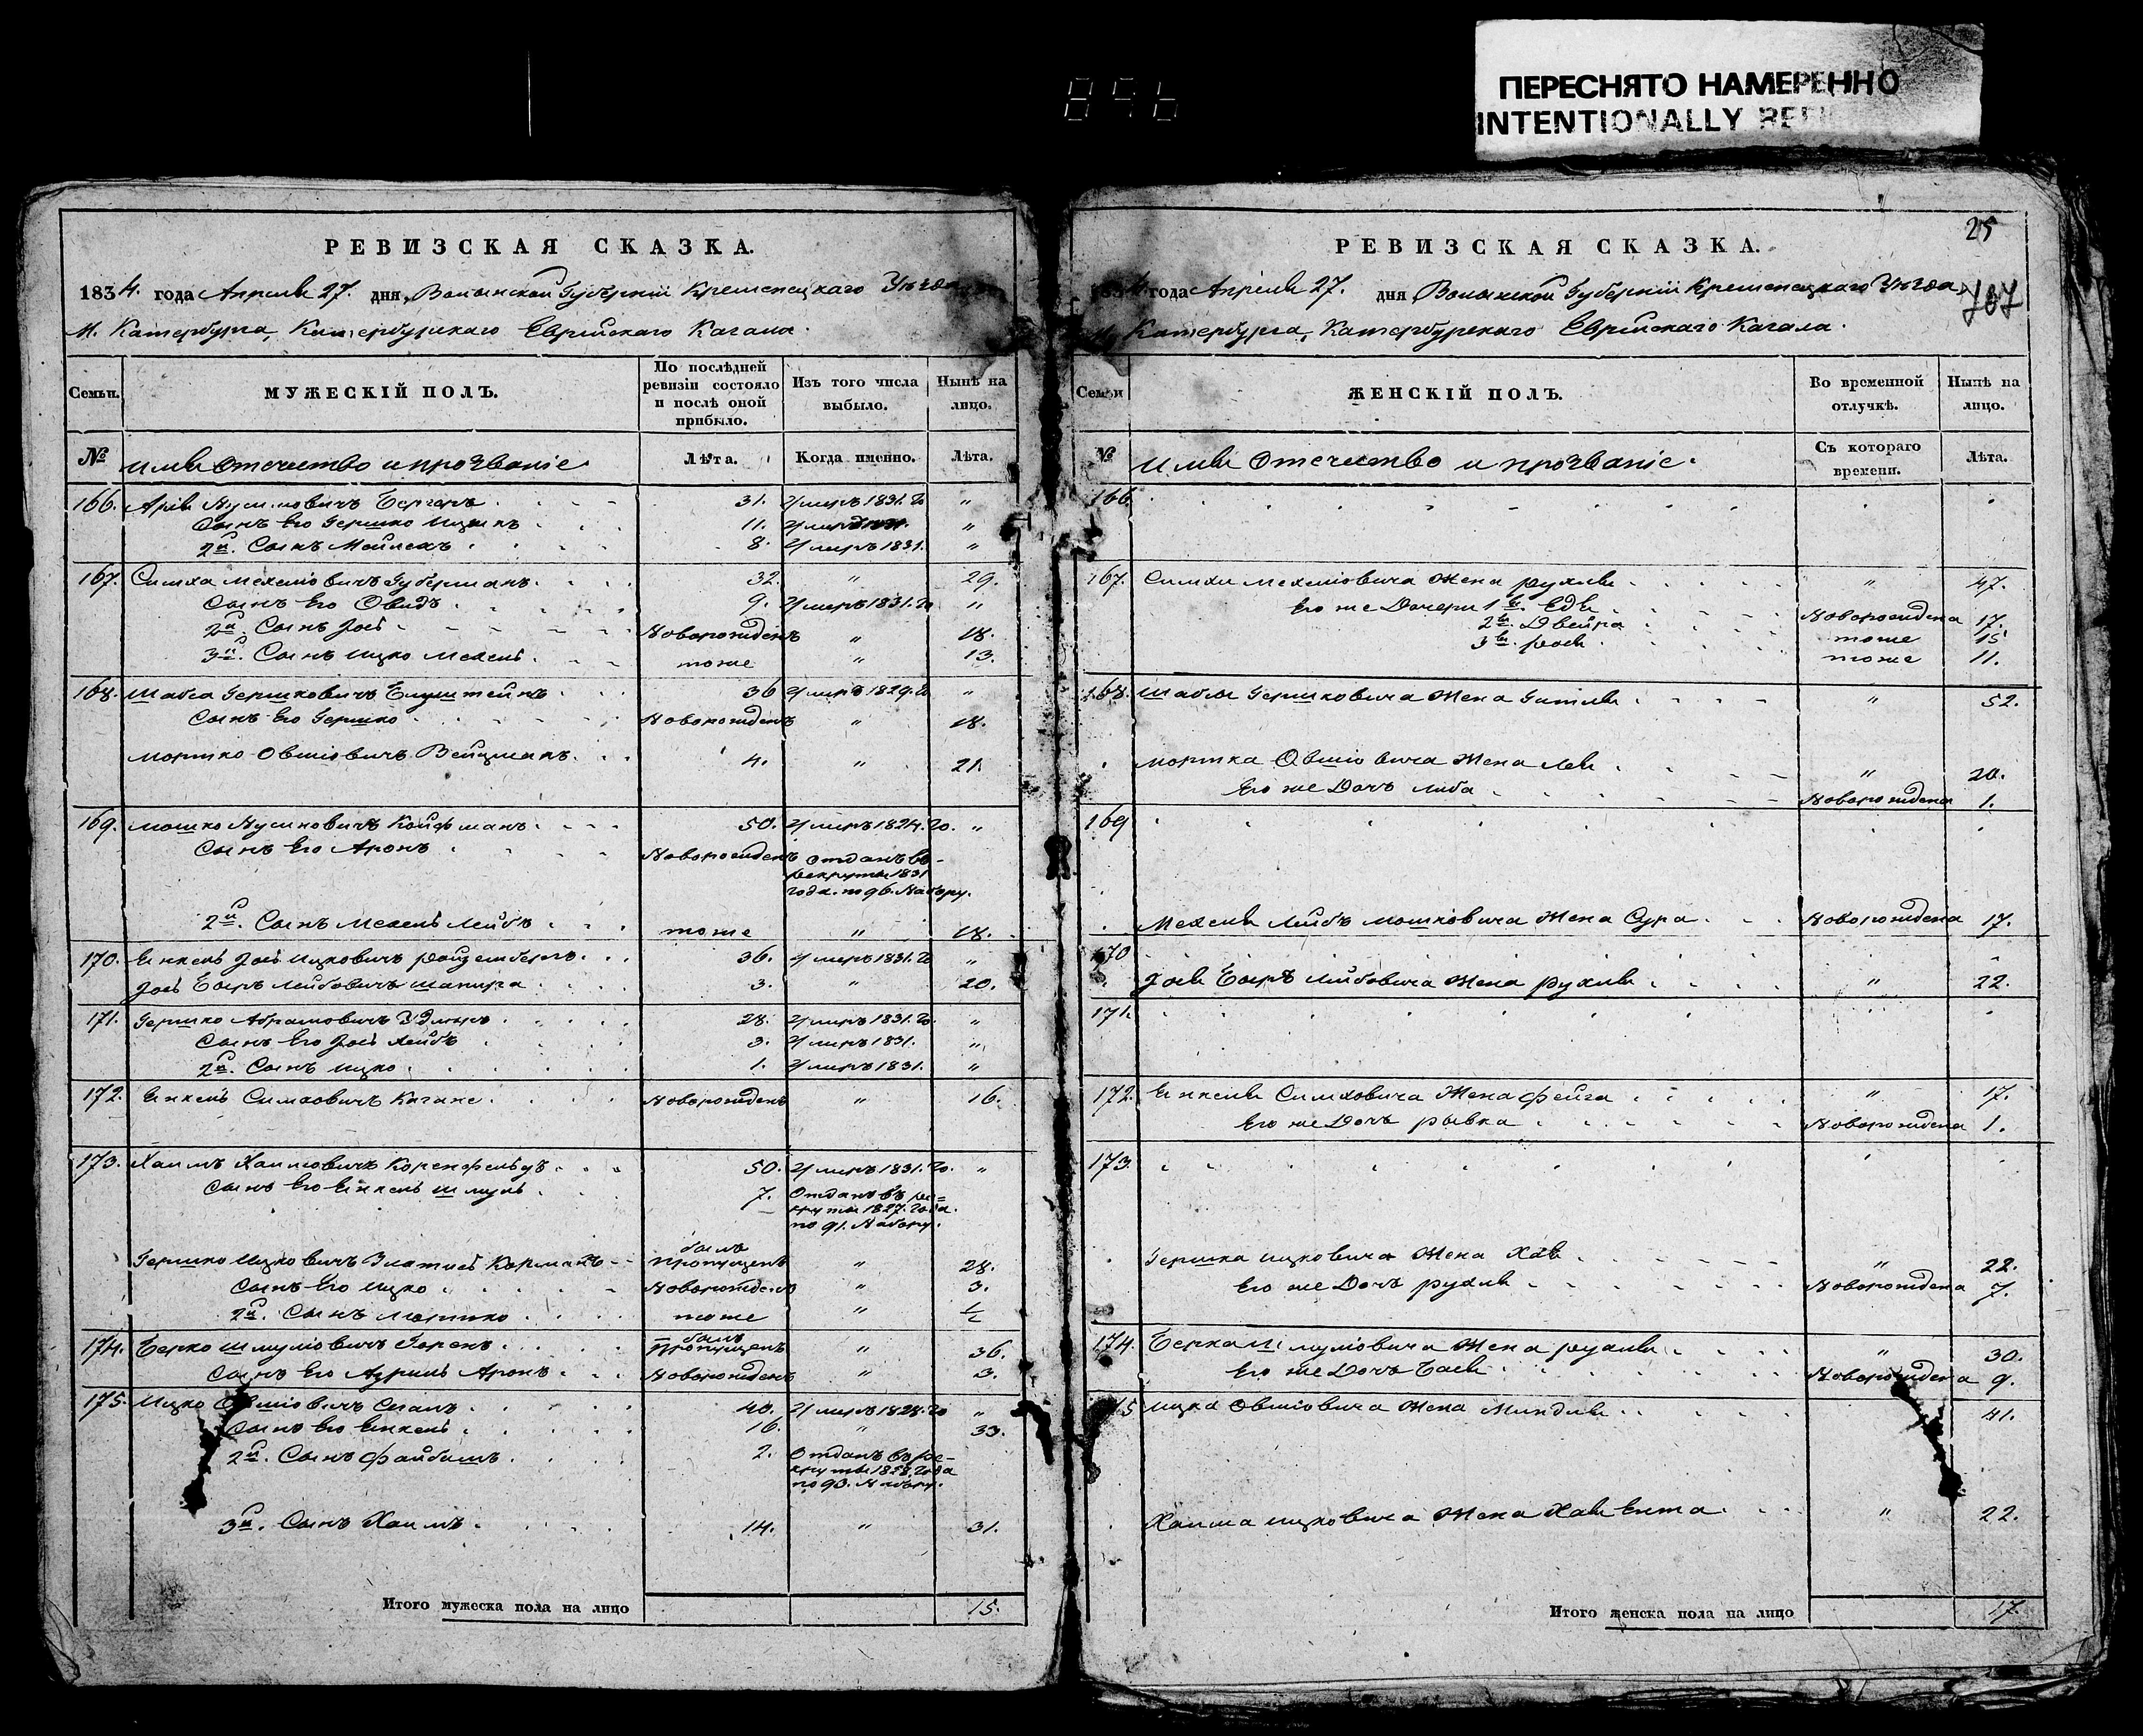 896
ПЕРЕСНЯТО НАМЕРЕННО
INTENTIONALLY
РЕВИЗСКАЯ СКАЗКА.
1834. года Апреля 27. дня, Волынской Губерніи Кременецкаго Уѣзда
М. Катербурга, Катербурскаго Еврейскаго Кагала.
Семьи. МУЖЕСКІЙ ПОЛЪ. По послѣдней ревизіи состояло и послѣ оной прибыло. Изъ того числа выбыло. Нынѣ на лицо.
№ Имя Отечество и прозваніе Лѣта. Когда именно. Лѣта.
166. Арія Бергеръ 31. умеръ 1831. го "
Сынъ Его Гершко Ицыкъ 11. "
2й. Сынъ Мошлехъ 8. умеръ 1831. "
167. Симха Мехелювичъ Губерманъ. 32. " 29.
Сынъ Его Овидъ 9. умеръ 1831. го "
2й. Сынъ Іось Новорожденъ " 18.
3й. Сынъ Ицко Мехель. тоже " 13.
168. Шабса Гершковичъ 36 умеръ 1829. го "
Сынъ Его Гершко Новорожденъ " 18.
Мортко Овшіовичъ Вейцманъ. 4. " 21.
169. Мошко Койфманъ. 50. умеръ 1824. го. "
Сынъ Его Аронъ Новорожденъ Отданъ въ
рекруты 1831
года. по 96. Набору.
2й. Сынъ Мехель Лейбъ тоже " 18.
170. Енкель Іось Ицковичъ Розенбергъ. 36. умеръ 1831. го "
Іось Беръ Лейбовичъ Шапира 3. " 20.
171. Гершко Абрамовичъ 28. умеръ 1831. го. "
Сынъ Его Іось Лейбъ 3. умеръ 1831. "
2й. Сынъ Ицко. 1. умеръ 1831. "
172. Енкель Симховичъ Каганъ. Новорожденъ " 16.
173. Хаимъ Хаимовичъ Коренфельдъ 50. умеръ 1831. го. "
Сынъ Его Енкель Шмуль 7. Отданъ въ ре-
круты 1827. года.
по 91. Набору.
Гершко Ицковичъ Корманъ былъ пропущенъ " 28.
Сынъ Его Ицко Новорожденъ " 3.
2й. Сынъ Мортко тоже " ½
174. Берко Шмулювичъ Горенъ. былъ пропущенъ " 36.
Сынъ Его Азриль Аронъ Новорожденъ " 3.
175. Ицко Овшіовичъ 40. умеръ 1828. го "
Сынъ Его Енкель. 16. " 33.
2й. Сынъ Файбишъ 2. Отданъ въ ре-
круты 1828. года
по 93. Набору.
3й. Сынъ Хаимъ 14. " 31.
Итого мужеска пола на лицо 15.
25
РЕВИЗСКАЯ СКАЗКА.
1834 года Апреля 27. дня Волынской Губерніи Кременецкаго Уѣзда,
707
М. Катербурга, Катербурскаго Еврейскаго Кагала.
Семьи ЖЕНСКІЙ ПОЛЪ. Во временной отлучкѣ. Нынѣ на лицо.
№ Имя Отечество и прозваніе. Съ котораго времени. Лѣта.
166.
167. Симхи Мехелювича Жена Рухля " 47.
Его же Дочери 1я. Едя Новорождена 17.
2я. Двейра тоже 15
3я. Рося тоже 11.
168. Шабсы Гершковича Жена Гитля " 52.
Мортка Овшіовича Жена Лея " 20.
Его же Дочь Либа Новорождена 1.
169
Мехеля Лейбъ Мошковича Жена Сура Новорождена 17.
170
Іося Беръ Лейбовича Жена Рухля " 22.
171.
172. Енкеля Симховича Жена Фейга " 17.
Его же Дочь Рывка Новорождена 1.
173.
Гершка Ицковича Жена Хая " 22.
Его же Дочь Рухля Новорождена 7.
174. Берка Шмулювича Жена Рухля " 30.
Его же Дочь Бася Новорождена 9.
175 Ицка Овшіовича Жена Миндля 41.
Хаима Ицковича Жена Хая Ента " 22.
Итого женска пола на лицо 17.